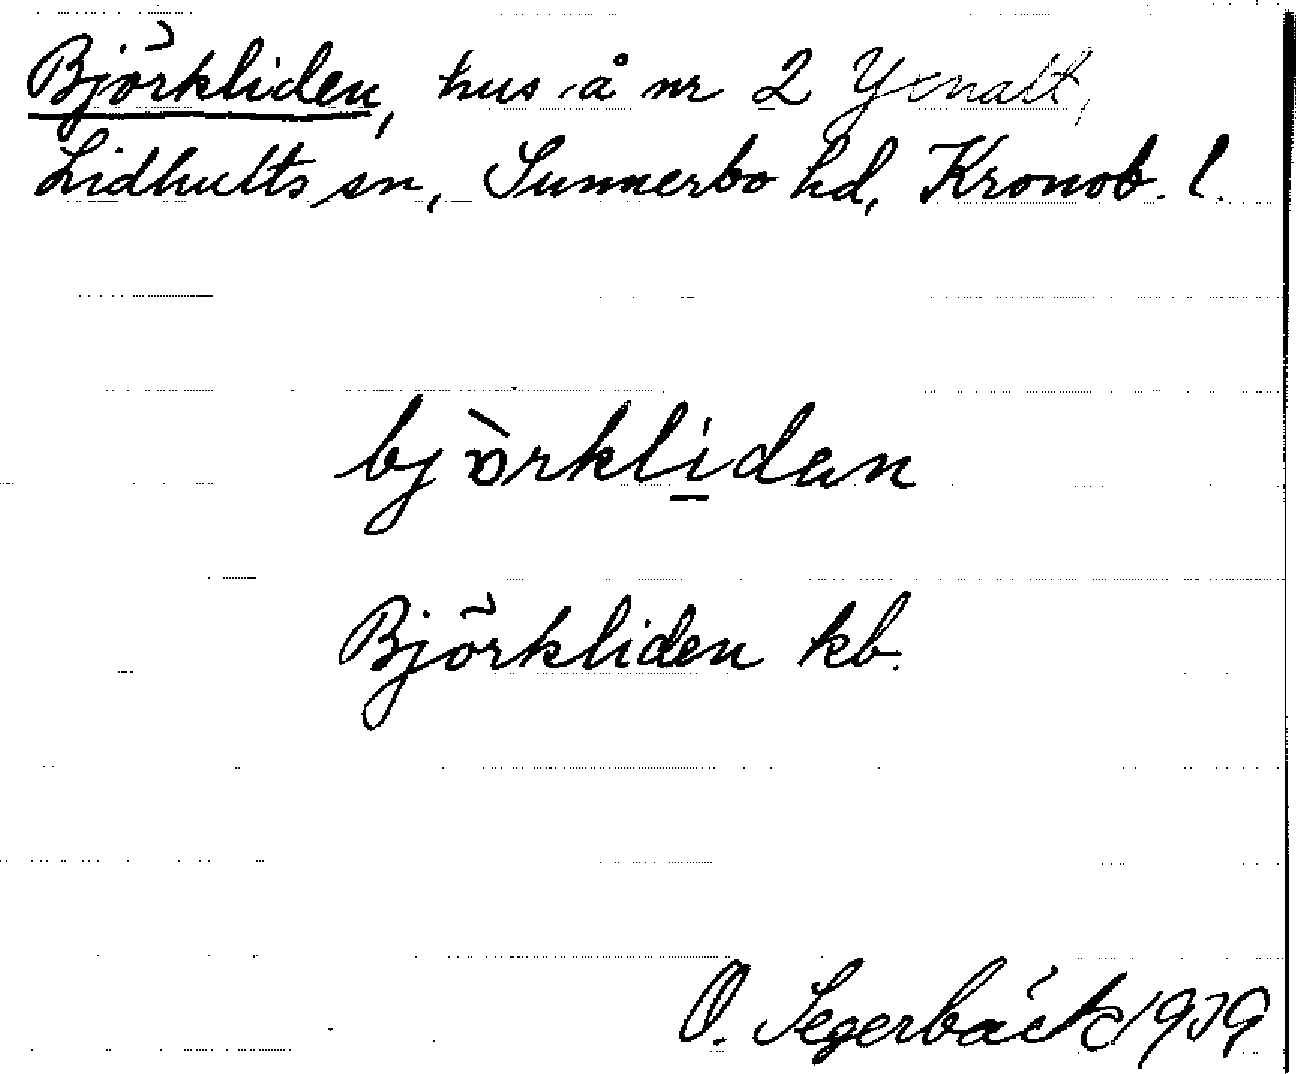 Björkliden, hus å nr 2 Yxnalt,
Lidhults sn, Sunnerbo hd, Kronob. l.
bjòrklidan
Björkliden kb.
O. Segerbäck 1939